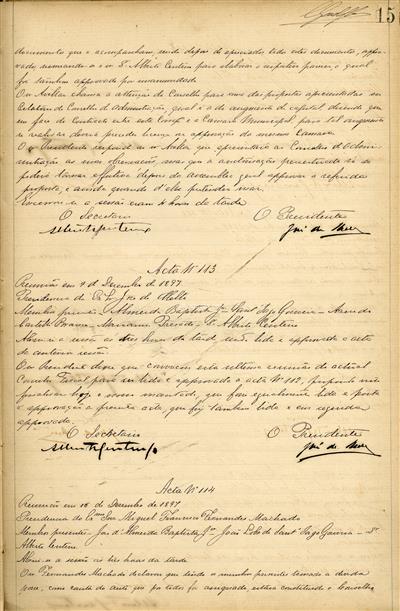 15
documento que o acompanham, sendo depois de apreciados todos estes documentos, appro-
vado, nomeando-se o Sr. Alberto Centeno para elaborar o respectivo parecer, o qual
foi tambem approvado por unanimidade
O Sr. Avellar chama a attenção do Conselho para uma das propostas apresentadas no
Relatorio do Conselho d'Administração, qual é a do augmento de capital, dizendo que
em face do Contracto entre esta Comp.ª e a Camara Municipal para tal augmento
se realisar deverá preceder licença ou approvação da mesma Camara.
O Sr. Presidente responde ao Sr. Avellar que apresentará ao Conselho d'Adminis-
tração as suas observações, mas que a auctorisação só se
poderá tornar effectiva depois da assemblea geral approvar a referida
proposta, e ainda quando d'ella pretendam usar.
Encerrou-se a sessão eram 4 horas da tarde
O Secretario O Presidente
Acta Nº 113
Reunião em 9 de Dezembro de 1897
Presidencia do Sr. José de Mello
Membros presentes Almeida Baptista Jr.
Castello Branco, Marianno Prezado, Sr. Alberto Centeno
Abriu-se a sessão ás tres horas da tarde, sendo lida e approvada a acta
da anterior sessão.
O Sr. Presidente disse que convocou esta ultima reunião do actual
Conselho Fiscal para ser lida e approvada a acta Nº 112, e
finalisar hoje o nosso mandato, que foi egualmente lida e posta
á approvação a presente acta, que foi tambem lida e em seguida
approvada.
O Secretario O Presidente
Acta Nº 114
Reunião em 16 de Dezembro de 1897
Presidencia do Ex.mo Snr. Miguel Francisco Fernandes Machado
Membros presentes: José d'Almeida Baptista Jr., João Lobo de Sant'Iago Gouveia - Sr.
Alberto Centeno
Abriu-se a sessão ás tres horas da tarde
O Sr. Fernandes Machado declarou que tendo os membros presentes tomado a devida
posse, como consta do auto que por todos foi assignado, estava constituido o Conselho